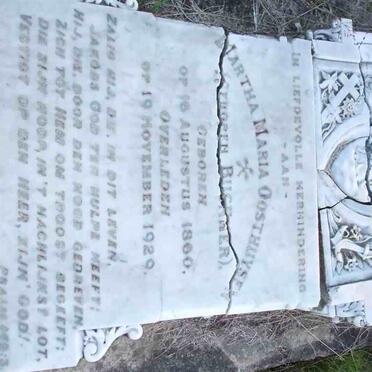 IN LIEFDEVOLLE HERINNERING
– AAN –
MARTHA MARIA OOSTHUYSEN
GEBOREN
OP 16 AUGUSTUS 1860.
OVERLEDEN
OP 19 NOVEMBER 1929.
ZALIG HIJ, DIE IN DIT LEVEN,
JACOBS GOD TER HULPE HEEFT
HIJ, DIE DOOR DEN NOOD GEDREVEN
ZICH TOT HEM OM TROOST BEGEEFT
DIE ZIJN HOOP, IN 'T HACHLIJKST LOT,
VESTIGT OP DEN HEER, ZIJN GOD.
PSALM